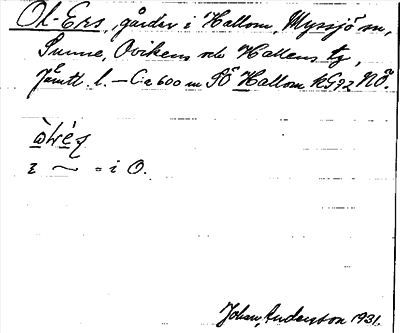 Ol-Ers, gårdar i Hallom, Myssjö sn,
Sunne, Ovikens och Hallens tg,
Jämtl. l. – C:a 600 m SÖ Hallom kG72 NÖ.
i ~ = i O.
Johan Anderson 1931.